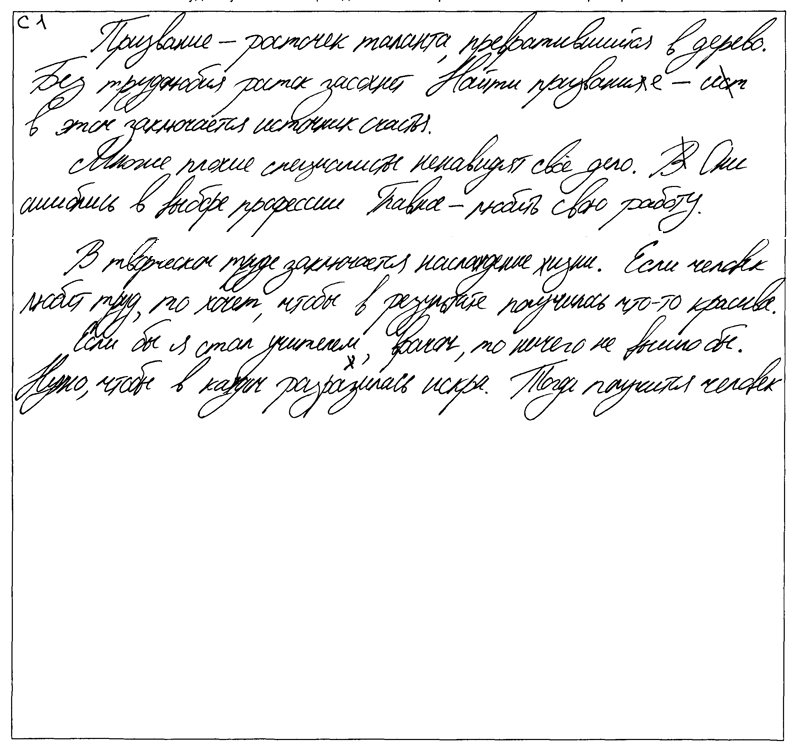 С1
Призвание – росточек таланта, превратившийся в дерево.
Без трудолюбия росток засохнет Найти призвание –
в этом заключается источник счастья.
Многие плохие специалисты ненавидят своё дело. Они
ошиблись в выборе профессии Главное – любить свою работу.
В творческом труде заключается наслаждение жизни. Если человек
любит труд, то хочет, чтобы в результате получилось что-то красивое.
Если бы я стал учителем, врачом, то ничего не вышло бы.
Нужно, чтобы в каждом разразилась искра. Тогда получится человек